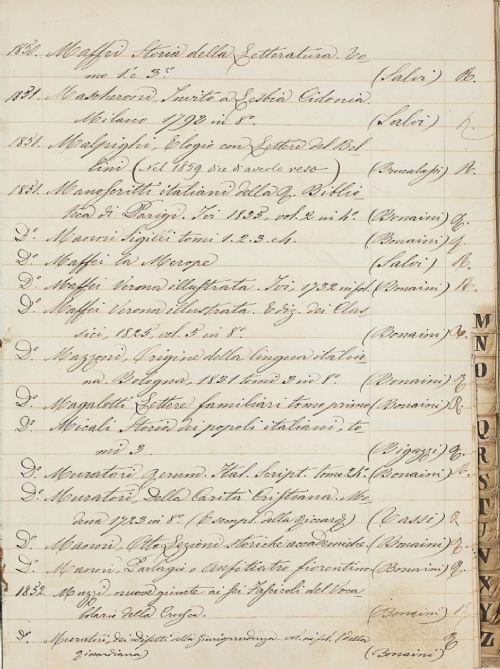 1850. Maffei Storia della Letteratura. To-
mo 1.e 3.° (Salvi) R.
1851. Mascheroni Invito a Lesbia Cidonia
Milano 1792 in 8.° (Salvi)
1851. Malpighi, Elogio con Lettere del Bel-
lini (Nel 1859 dice di averlo reso) R.
1851. Manoscritti italiani della R. Biblio-
teca di Parigi. Ivi 1835, vol. 2 in 4.° (Bonaini) R.
D.° Manni Sigilli tomi 1.2.3.e4. (Bonaini) R.
D.° Maffei la Merope (Salvi) R.
D.° Maffei Verona illustrata. Ivi, 1732 in fol. (Bonaini) R.
D.° Maffei Verona illustrata. Ediz. dei Clas-
sici, 1825, vol. 5 in 8.° (Bonaini) R.
D.° Mazzoni, Origine della lingua italia-
na. Bologna, 1831 tomi 2 in 8.° (Bonaini) R.
D.° Magalotti Lettere familiari tomo primo (Bonaini) R.
D.° Micali Storia dei popoli italiani, to-
mi 3. (Bigazzi) R.
D.° Muratori Rerum. Ital. Script. tomo 24.° (Bonaini) R.
D.° Muratori, Della Carità Cristiana. Mo-
dena 1723 in 8.° (Esempl. della Riccard.) (Tassi) R
D.° Manni, Otto Lezioni storiche accademiche. (Bonaini) R.
D.° Manni, Parlagio o Anfiteatro fiorentino (Bonaini) R.
1852. Muzzi nuove giunte ai sei Fascicoli del Voca-
bolario della Crusca. (Bonaini)
D.° Muratori, dei difetti della Giurisprudenza vol. in fol. (della
Riccardiana) (Bonaini) R
M
N
O
Q
R
S
T
U
V
X
Y
Z